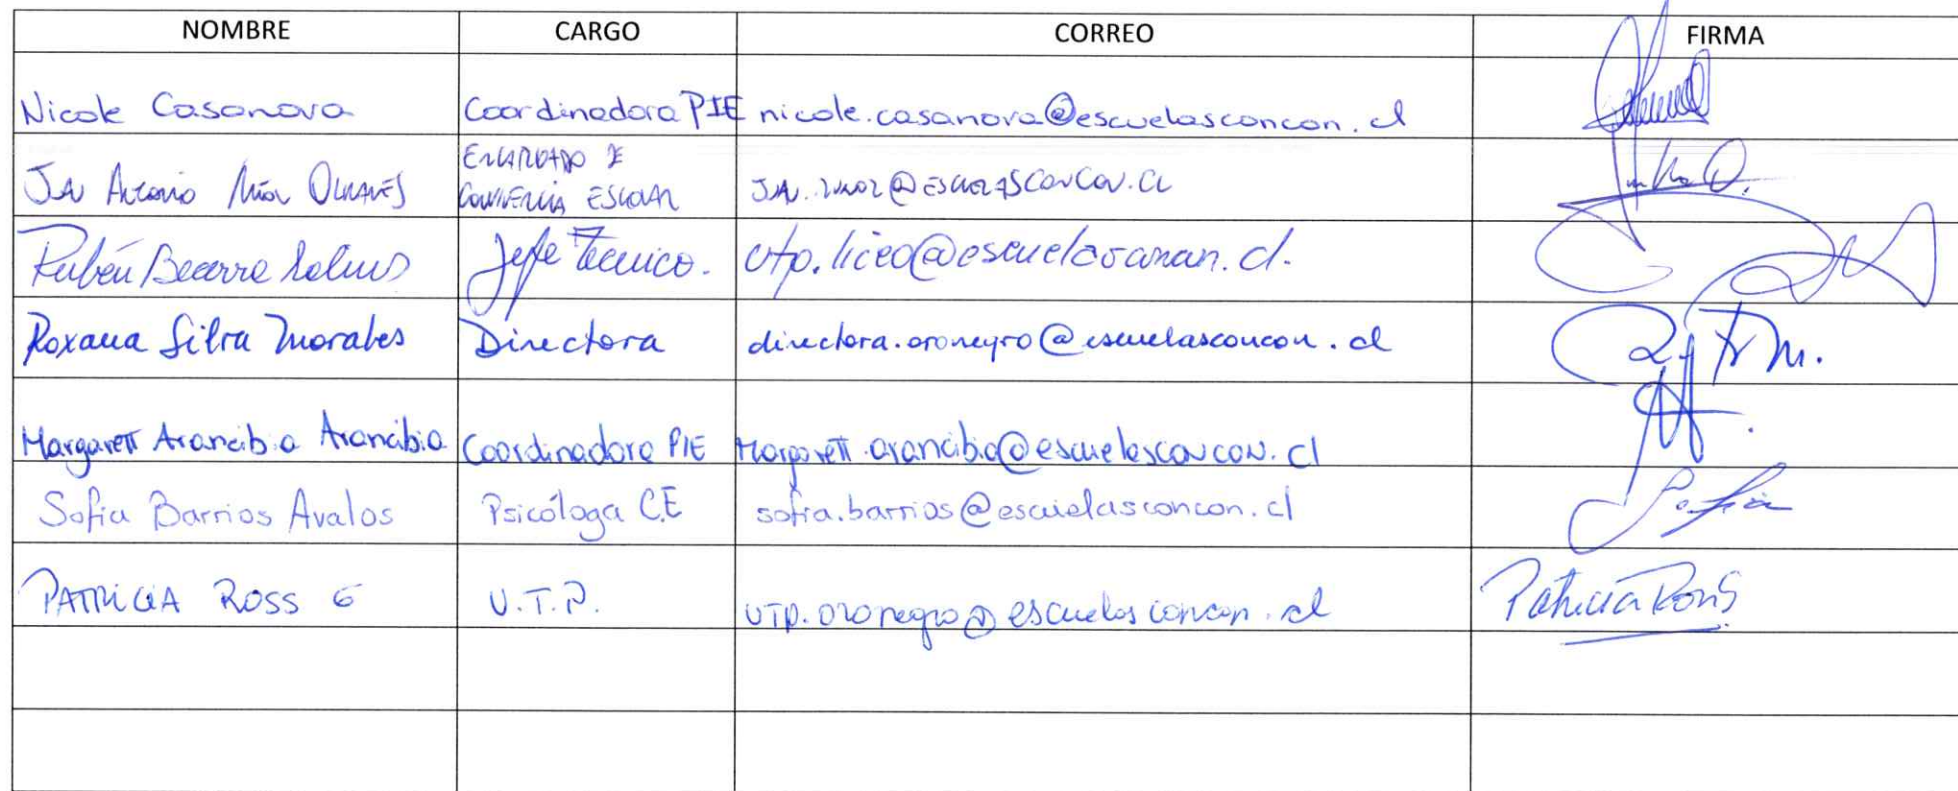 NOMBRE CARGO CORREO FIRMA
Nicole Casanova Coordinadora PIE nicole.casanova@escuelasconcon.cl
ENCARGADO DE
CONVIVENCIA ESCOLAR
Rubén Becerra Jefe Técnico. utp.liceo@escuelasconcon.cl.
Roxana Silva Morales Directora directora.oronegro@escuelasconcon.cl
Margarett Arancibia Arancibia Coordinadora PIE Margarett.arancibia@escuelasconcon.cl
Sofia Barrios Avalos Psicóloga C.E sofia.barrios@escuelasconcon.cl Sofia
PATRICIA ROSS G U.T.P. UTP.oronegro@escuelasconcon.cl Patricia Ross